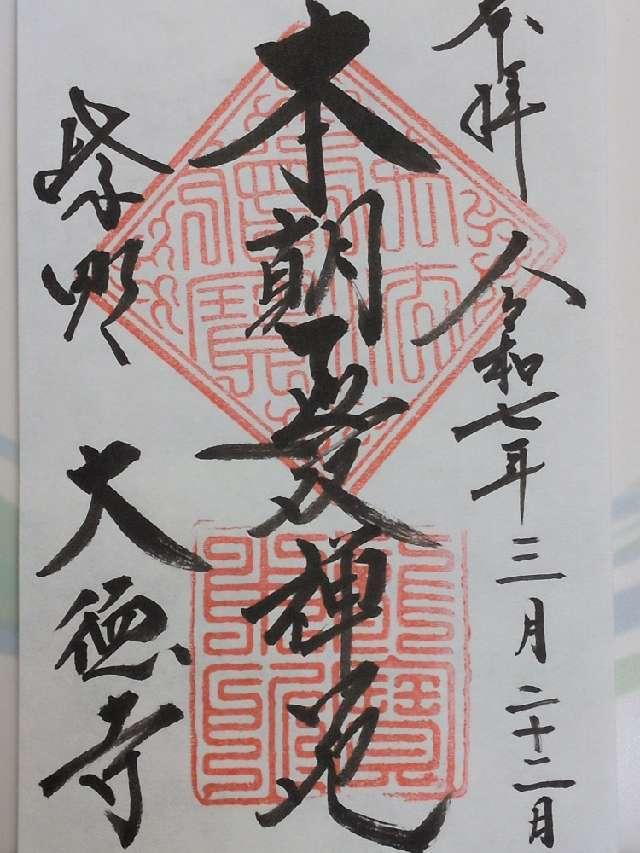 奉拝
令和七年三月二十二日
本朝無双禅苑
紫野
大徳寺